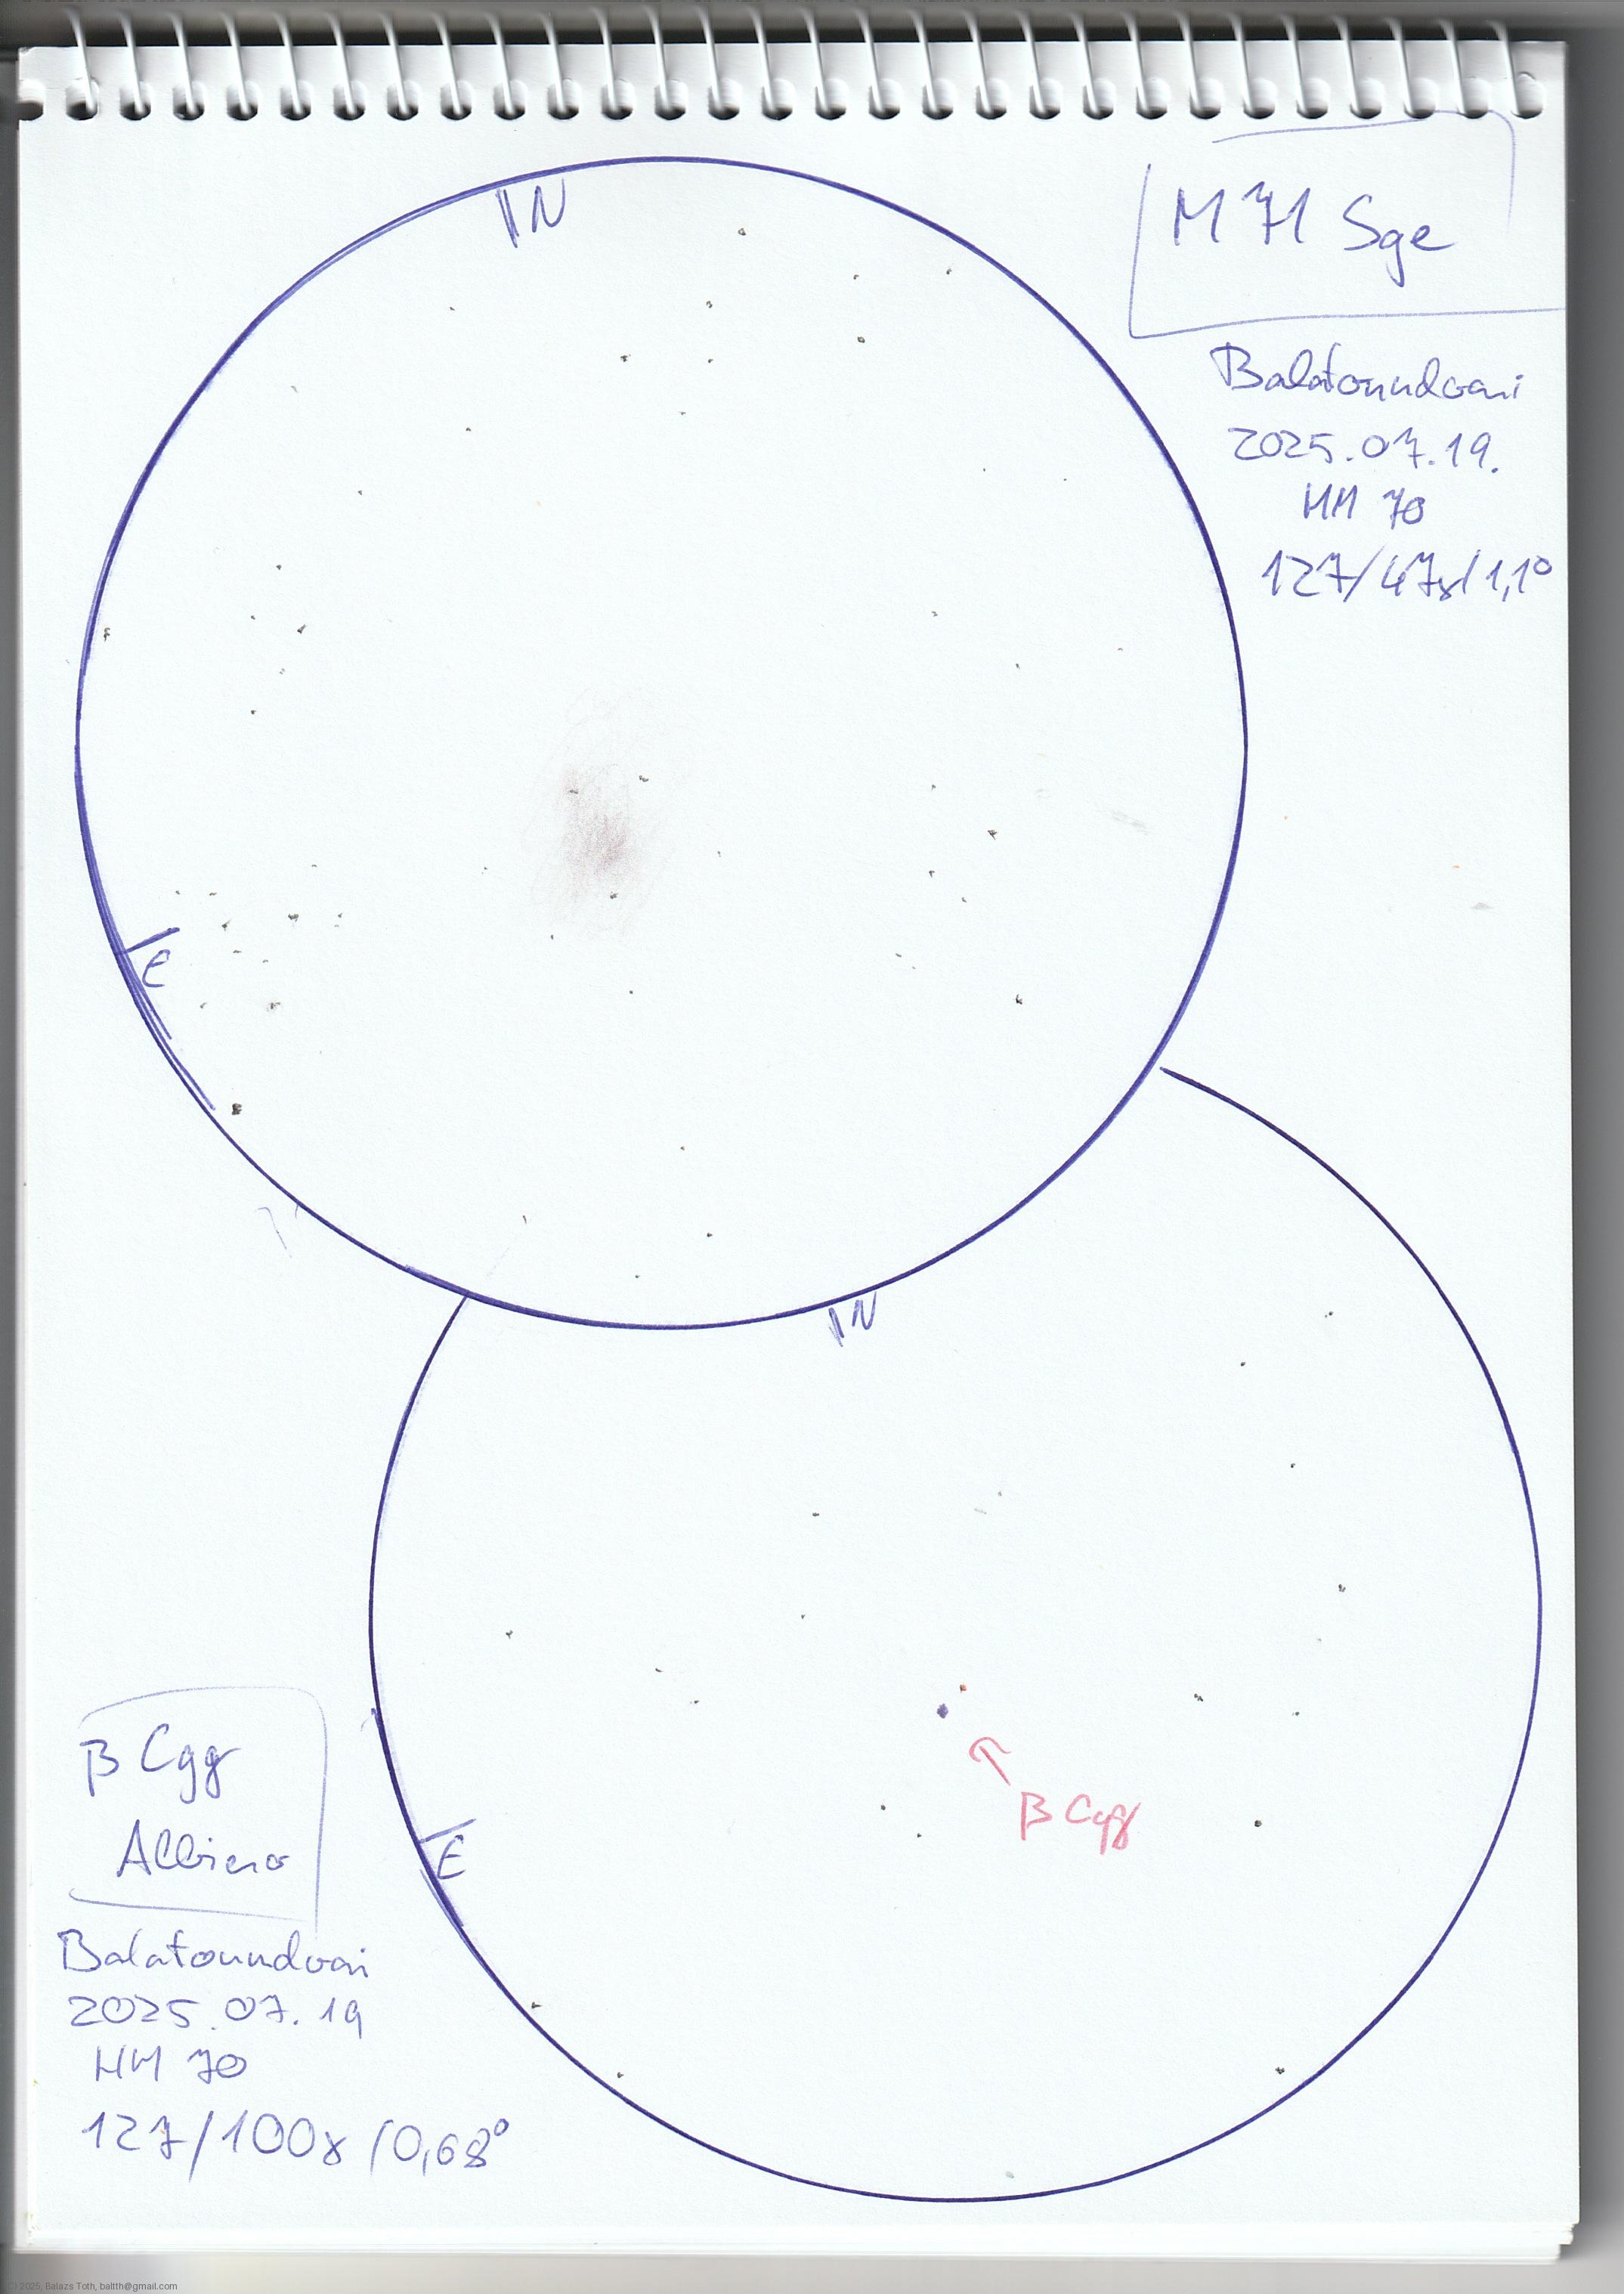 N
M 71 Sge
Balatonudvari
2025.07.19.
HM 70
127/47x/1,1°
E
N
β Cyg
β Cyg
Albireo
E
Balatonudvari
2025.07.19
HM 70
127/100x/0,68°
© 2025, Balazs Toth, baltth@gmail.com